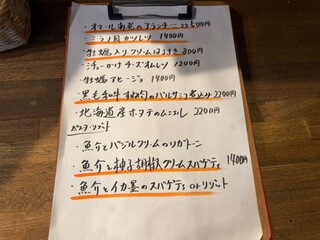 ・オマール海老のアランチーニ 2コ 500円
・こラ肉カツレツ 1400円
・牡蠣入りクリームはるまき 300円
・シチューがけチーズオムレツ 1200円
・牡蠣アヒージョ 1400円
・黒毛和牛すね肉のバルサミコ煮込み 2200円
・北海道産ホタテのムニエル 2200円
パスタ・リゾット
・魚介とバジルクリームのリガトーニ
・魚介と柚子胡椒クリームスパゲティ 1400円
・魚介とイカ墨のスパゲティ or リゾット